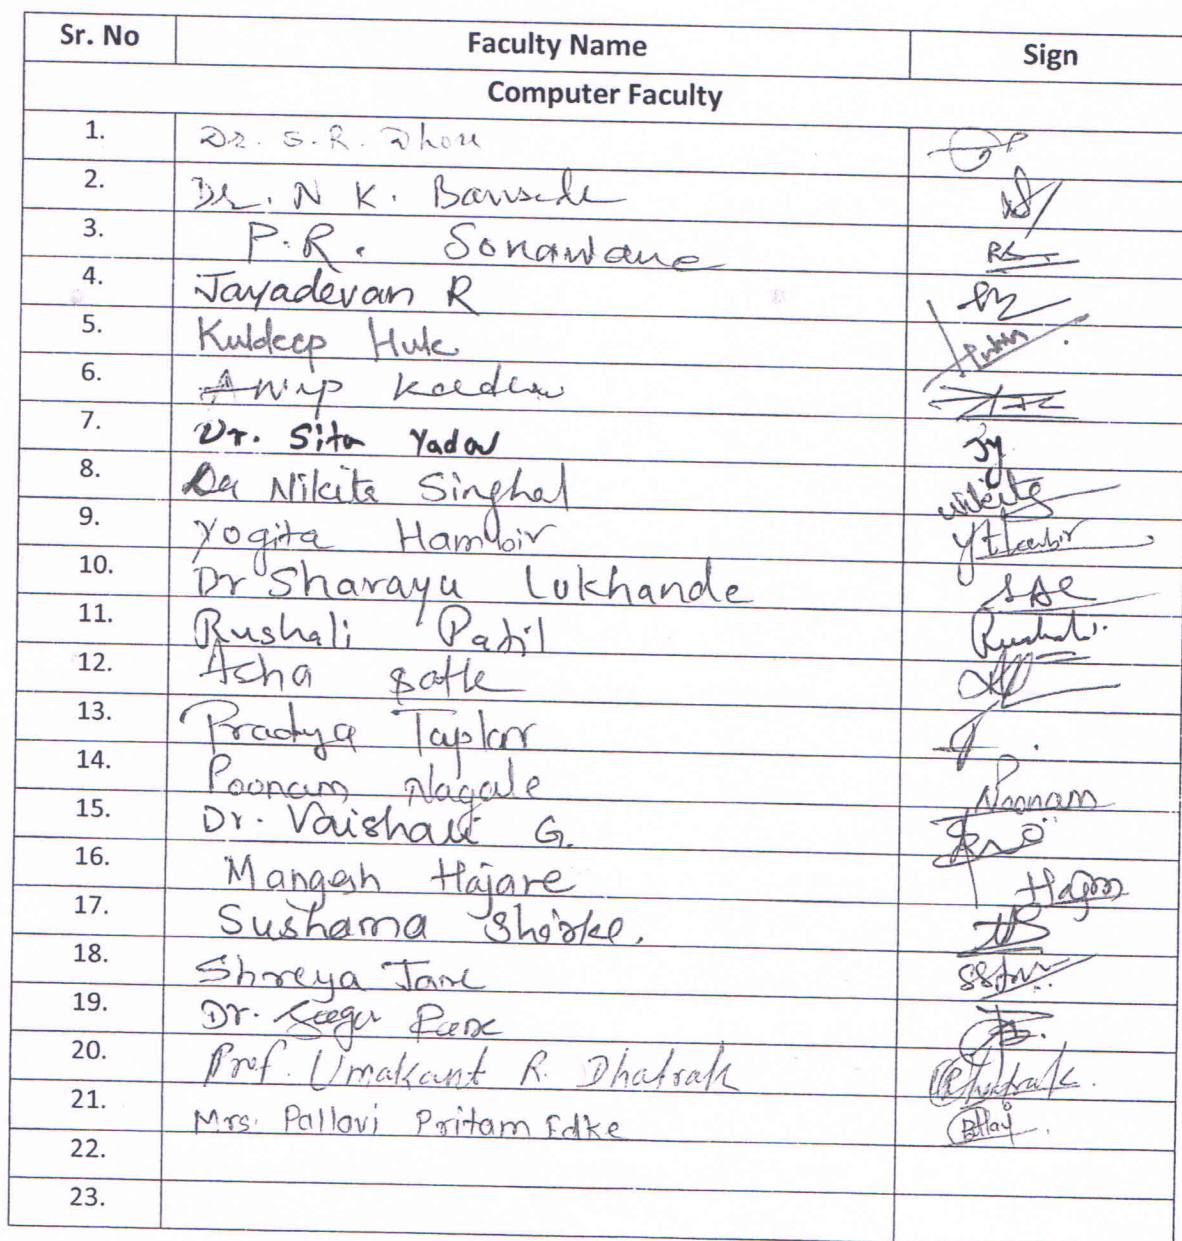 Sr. No Faculty Name Sign
Computer Faculty
1. Dr. S.R. Dhore
2. Dr. N K. Bansode
3. P.R. Sonawane
4. Jayadevan R
5. Kuldeep Hule
6. Anup Kadam
7. Dr. Sita Yadav
8. Dr Nikita Singhal Nikita
9. Yogita Hambir YHambir
10. Dr Sharayu Lokhande SAL
11. Rushali Patil Rushali
12. Asha Sathe
13. Pradnya Taplar
14. Poonam Nagale Poonam
15. Dr. Vaishali G.
16. Mangesh Hajare Hajare
17. Sushama Shirke.
18. Shreya Jane
19. Dr. Sagar Rane
20. Prof. Umakant R. Dhatrak Dhatrak.
21. Mrs. Pallavi Pritam Edke
22.
23.